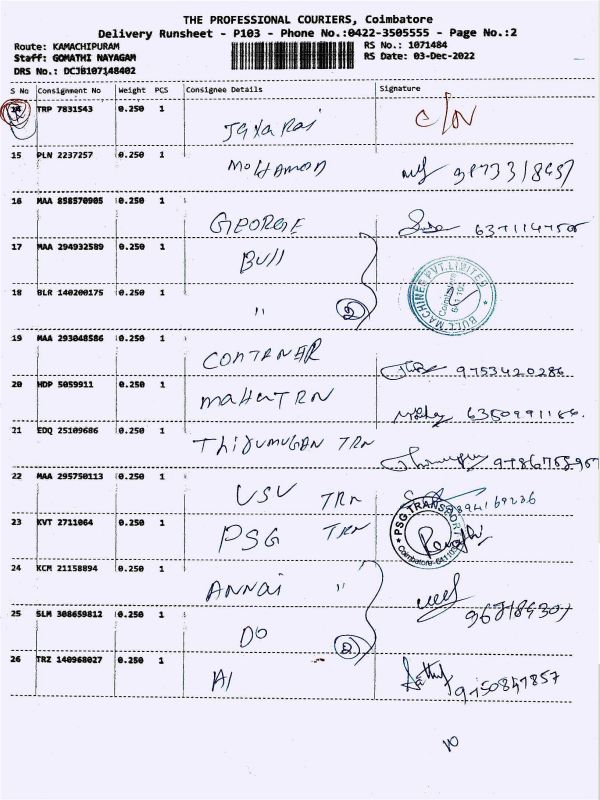 THE PROFESSIONAL COURIERS, Coimbatore
Delivery Runsheet - P103 - Phone No.:0422-3505555 - Page No.:2
Route: KAMACHIPURAM RS No.: 1071484
Staff: GOMATHI NAYAGAM RS Date: 03-Dec-2022
DRS No.: DCJB107148402
S No Consignment No Weight PCS Consignee Details Signature
14 TRP 7831543 0.250 1
Jayaraj C/N
15 PLN 2237257 0.250 1
MOHAMOD
16 MAA 858570905 0.250 1
GEORGE
17 MAA 294932589 0.250 1
Bull
BULL MACHINES PVT.LIMITED
18 BLR 140200175 0.250 1
" 2
19 MAA 293048586 0.250 1
CONTANER 9753420286
20 HDP 5059911 0.250 1
21 EDQ 25109686 0.250 1
TRN
22 MAA 295750113 0.250 1
VSV TRN
23 KVT 2711064 0.250 1
PSG TRN
PSG TRANSPORT
24 KCM 21158894 0.250 1
ANNAI "
25 SLM 308659812 0.250 1
DO 2
26 TRZ 140968027 0.250 1
AI 9150847857